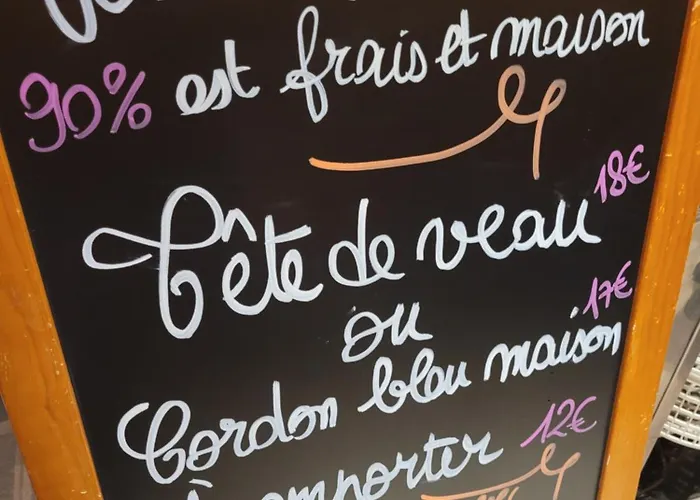 90% est frais et maison
Tête de veau 18€
ou
Cordon bleu maison 17€
À emporter 12€